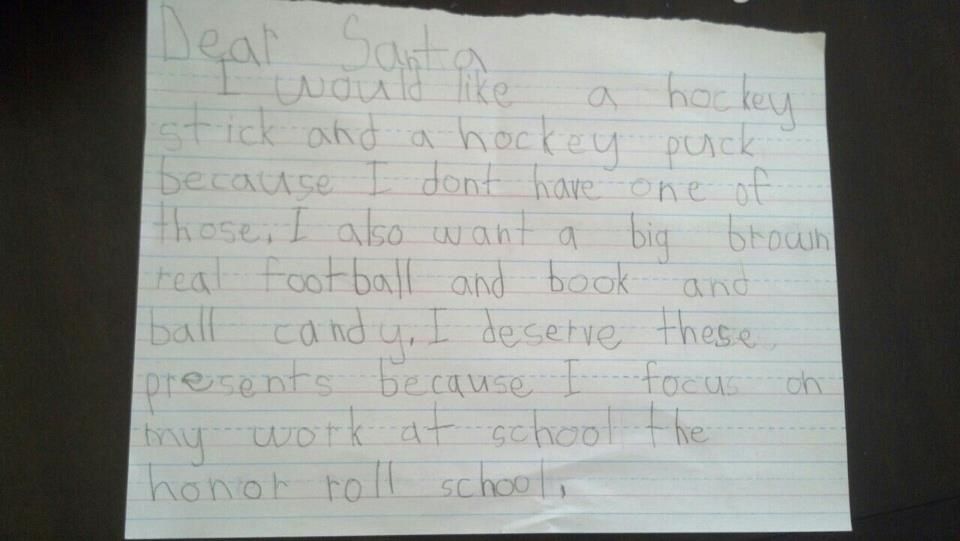 Dear Santa
I would like a hockey
stick and a hockey puck
because I dont have one of
those. I also want a big brown
real football and book and
ball candy. I deserve these
presents because I focus on
my work at school the
honor roll school.